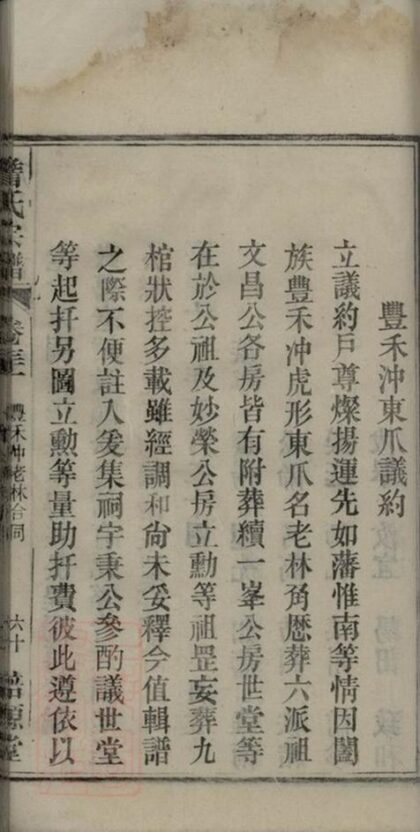 豐禾沖東爪議約
立議約戶尊燦揚運先如藩惟南等情因闔
族豐禾沖虎形東爪名老林角歷葬六派祖
文昌公各房皆有附葬續一峯公房世堂等
在於公祖及妙榮公房立勳等祖罡妄葬九
棺狀控多載雖經調和尚未妥釋今值輯譜
之際不便註入爰集祠宇秉公參酌議世堂
等起扦另圖立勳等量助扦費彼此遵依以
氏宗譜
豐禾沖老林合同
六十